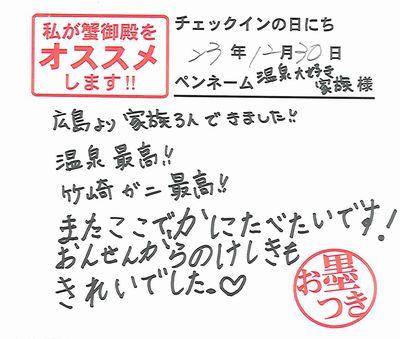 私が蟹御殿を
オススメ
します!!
チェックインの日にち
23年12月30日
ペンネーム温泉大好き家族様
広島より家族3人できました!!
温泉最高!!
竹崎がニ最高!!
またここでかにたべたいです!
おんせんからのけしきも
きれいでした。♡
お墨つき